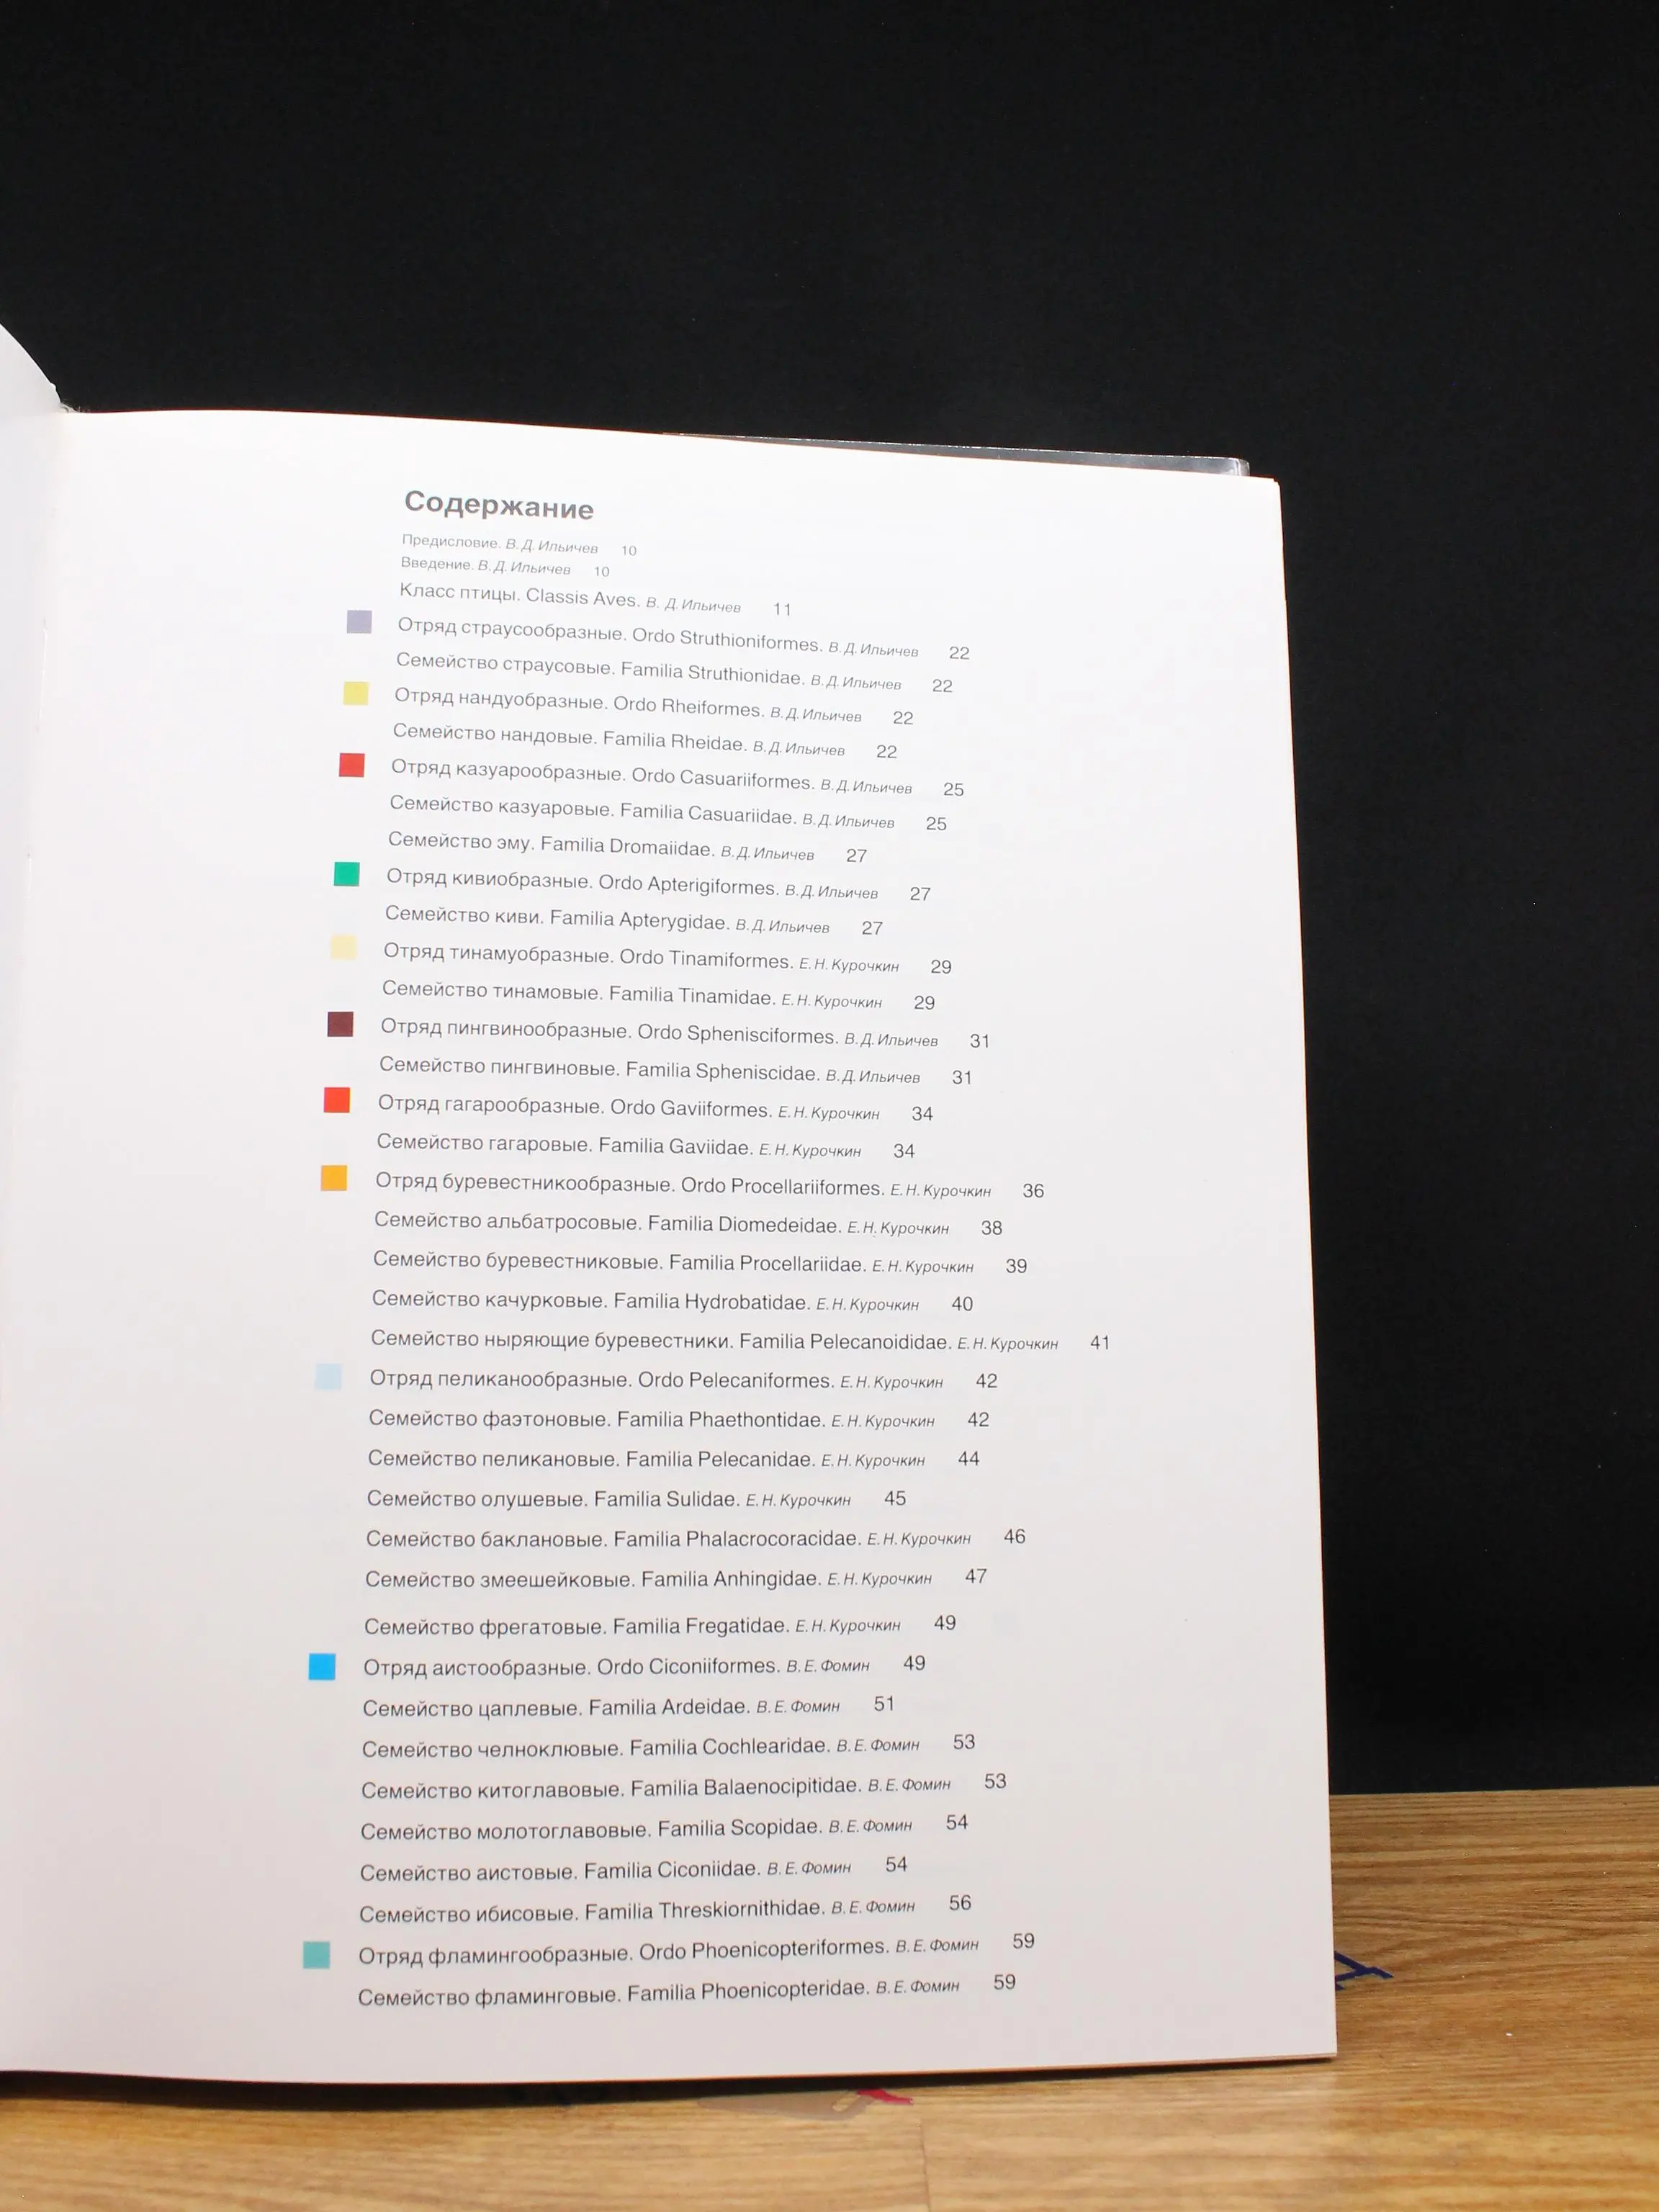 Содержание
Предисловие. В. Д. Ильичев 10
Введение. В. Д. Ильичев 10
Класс птицы. Classis Aves. В. Д. Ильичев 11
Отряд страусообразные. Ordo Struthioniformes. В. Д. Ильичев 22
Семейство страусовые. Familia Struthionidae. В. Д. Ильичев 22
Отряд нандуобразные. Ordo Rheiformes. В. Д. Ильичев 22
Семейство нандовые. Familia Rheidae. В. Д. Ильичев 22
Отряд казуарообразные. Ordo Casuariiformes. В. Д. Ильичев 25
Семейство казуаровые. Familia Casuariidae. В. Д. Ильичев 25
Семейство эму. Familia Dromaiidae. В. Д. Ильичев 27
Отряд кивиобразные. Ordo Apterigiformes. В. Д. Ильичев 27
Семейство киви. Familia Apterygidae. В. Д. Ильичев 27
Отряд тинамуобразные. Ordo Tinamiformes. Е. Н. Курочкин 29
Семейство тинамовые. Familia Tinamidae. Е. Н. Курочкин 29
Отряд пингвинообразные. Ordo Sphenisciformes. В. Д. Ильичев 31
Семейство пингвиновые. Familia Spheniscidae. В. Д. Ильичев 31
Отряд гагарообразные. Ordo Gaviiformes. Е. Н. Курочкин 34
Семейство гагаровые. Familia Gaviidae. Е. Н. Курочкин 34
Отряд буревестникообразные. Ordo Procellariiformes. Е. Н. Курочкин 36
Семейство альбатросовые. Familia Diomedeidae. Е. Н. Курочкин 38
Семейство буревестниковые. Familia Procellariidae. Е. Н. Курочкин 39
Семейство качурковые. Familia Hydrobatidae. Е. Н. Курочкин 40
Семейство ныряющие буревестники. Familia Pelecanoididae. Е. Н. Курочкин 41
Отряд пеликанообразные. Ordo Pelecaniformes. Е. Н. Курочкин 42
Семейство фаэтоновые. Familia Phaethontidae. Е. Н. Курочкин 42
Семейство пеликановые. Familia Pelecanidae. Е. Н. Курочкин 44
Семейство олушевые. Familia Sulidae. Е. Н. Курочкин 45
Семейство баклановые. Familia Phalacrocoracidae. Е. Н. Курочкин 46
Семейство змеешейковые. Familia Anhingidae. Е. Н. Курочкин 47
Семейство фрегатовые. Familia Fregatidae. Е. Н. Курочкин 49
Отряд аистообразные. Ordo Ciconiiformes. В. Е. Фомин 49
Семейство цаплевые. Familia Ardeidae. В. Е. Фомин 51
Семейство челноклювые. Familia Cochlearidae. В. Е. Фомин 53
Семейство китоглавовые. Familia Balaenocipitidae. В. Е. Фомин 53
Семейство молотоглавовые. Familia Scopidae. В. Е. Фомин 54
Семейство аистовые. Familia Ciconiidae. В. Е. Фомин 54
Семейство ибисовые. Familia Threskiornithidae. В. Е. Фомин 56
Отряд фламингообразные. Ordo Phoenicopteriformes. В. Е. Фомин 59
Семейство фламинговые. Familia Phoenicopteridae. В. Е. Фомин 59